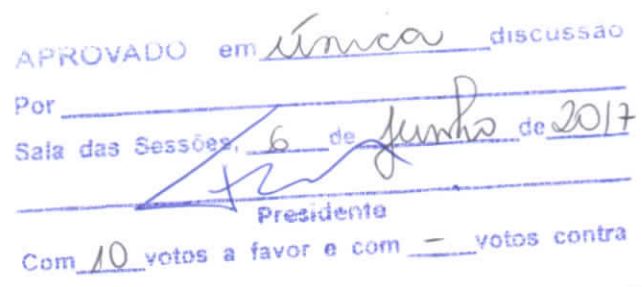 APROVADO em única discussão
Por
Sala das Sessões, 6 de Junho de 2017
Presidente
Com 10 votos a favor e com - votos contra